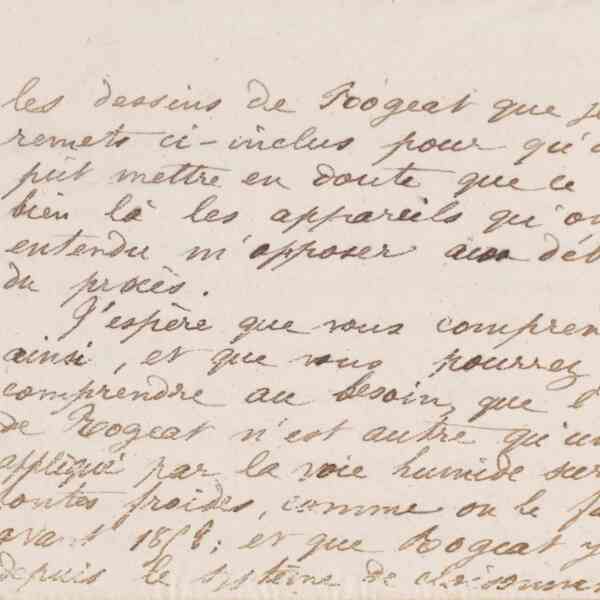 les dessins de Rogeat que je
remets ci-inclus pour qu'o
pût mettre en doute que ce
bien là les appareils qu'on
entendu m'opposer aux déb
du procès.
J'espère que vous compren
ainsi, et que vous pourrez
comprendre au besoin, que l'
de Rogeat n'est autre qu'un
appliqué par la voie humide sur
fontes froides, comme on le fa
avant 185 ; et que Rogeat y
depuis le système de